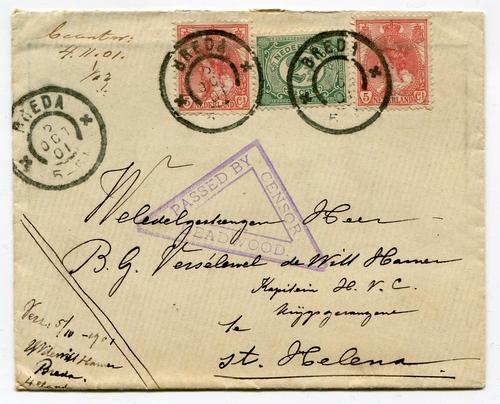 Beantw:
4.11.01.
BREDA
OCT
01
BREDA
OCT
BREDA
5
NEDERLAND
5 Ct
NEDERLAND
5
PASSED BY
CENSOR
DEADWOOD
Weledelgestrengen Heer
B. G. Verselewel de Witt Hamer
Kapitein H. V. C.
Krijgsgevangene
te
St. Helena.
Verz. 5/10 - 1901
de Witt Hamer
Breda.
Holland